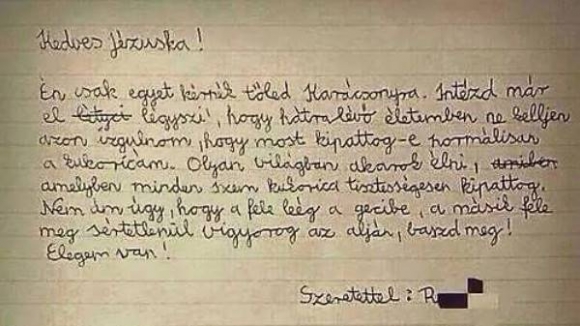 Kedves Jézuska!
Én csak egyet kérnék tőled Karácsonyra. Intézd már
el légyszi, hogy hátralévő életemben ne kelljen
azon izgulnom, hogy most kipattog-e normálisan
a kukoricám. Olyan világban akarok élni,
amelyben minden szem kukorica tisztességesen kipattog.
Nem ám úgy, hogy a fele leég a gecibe, a másik fele
meg sértetlenül vigyorog az alján, baszd meg!
Elegem van!
Szeretettel: R